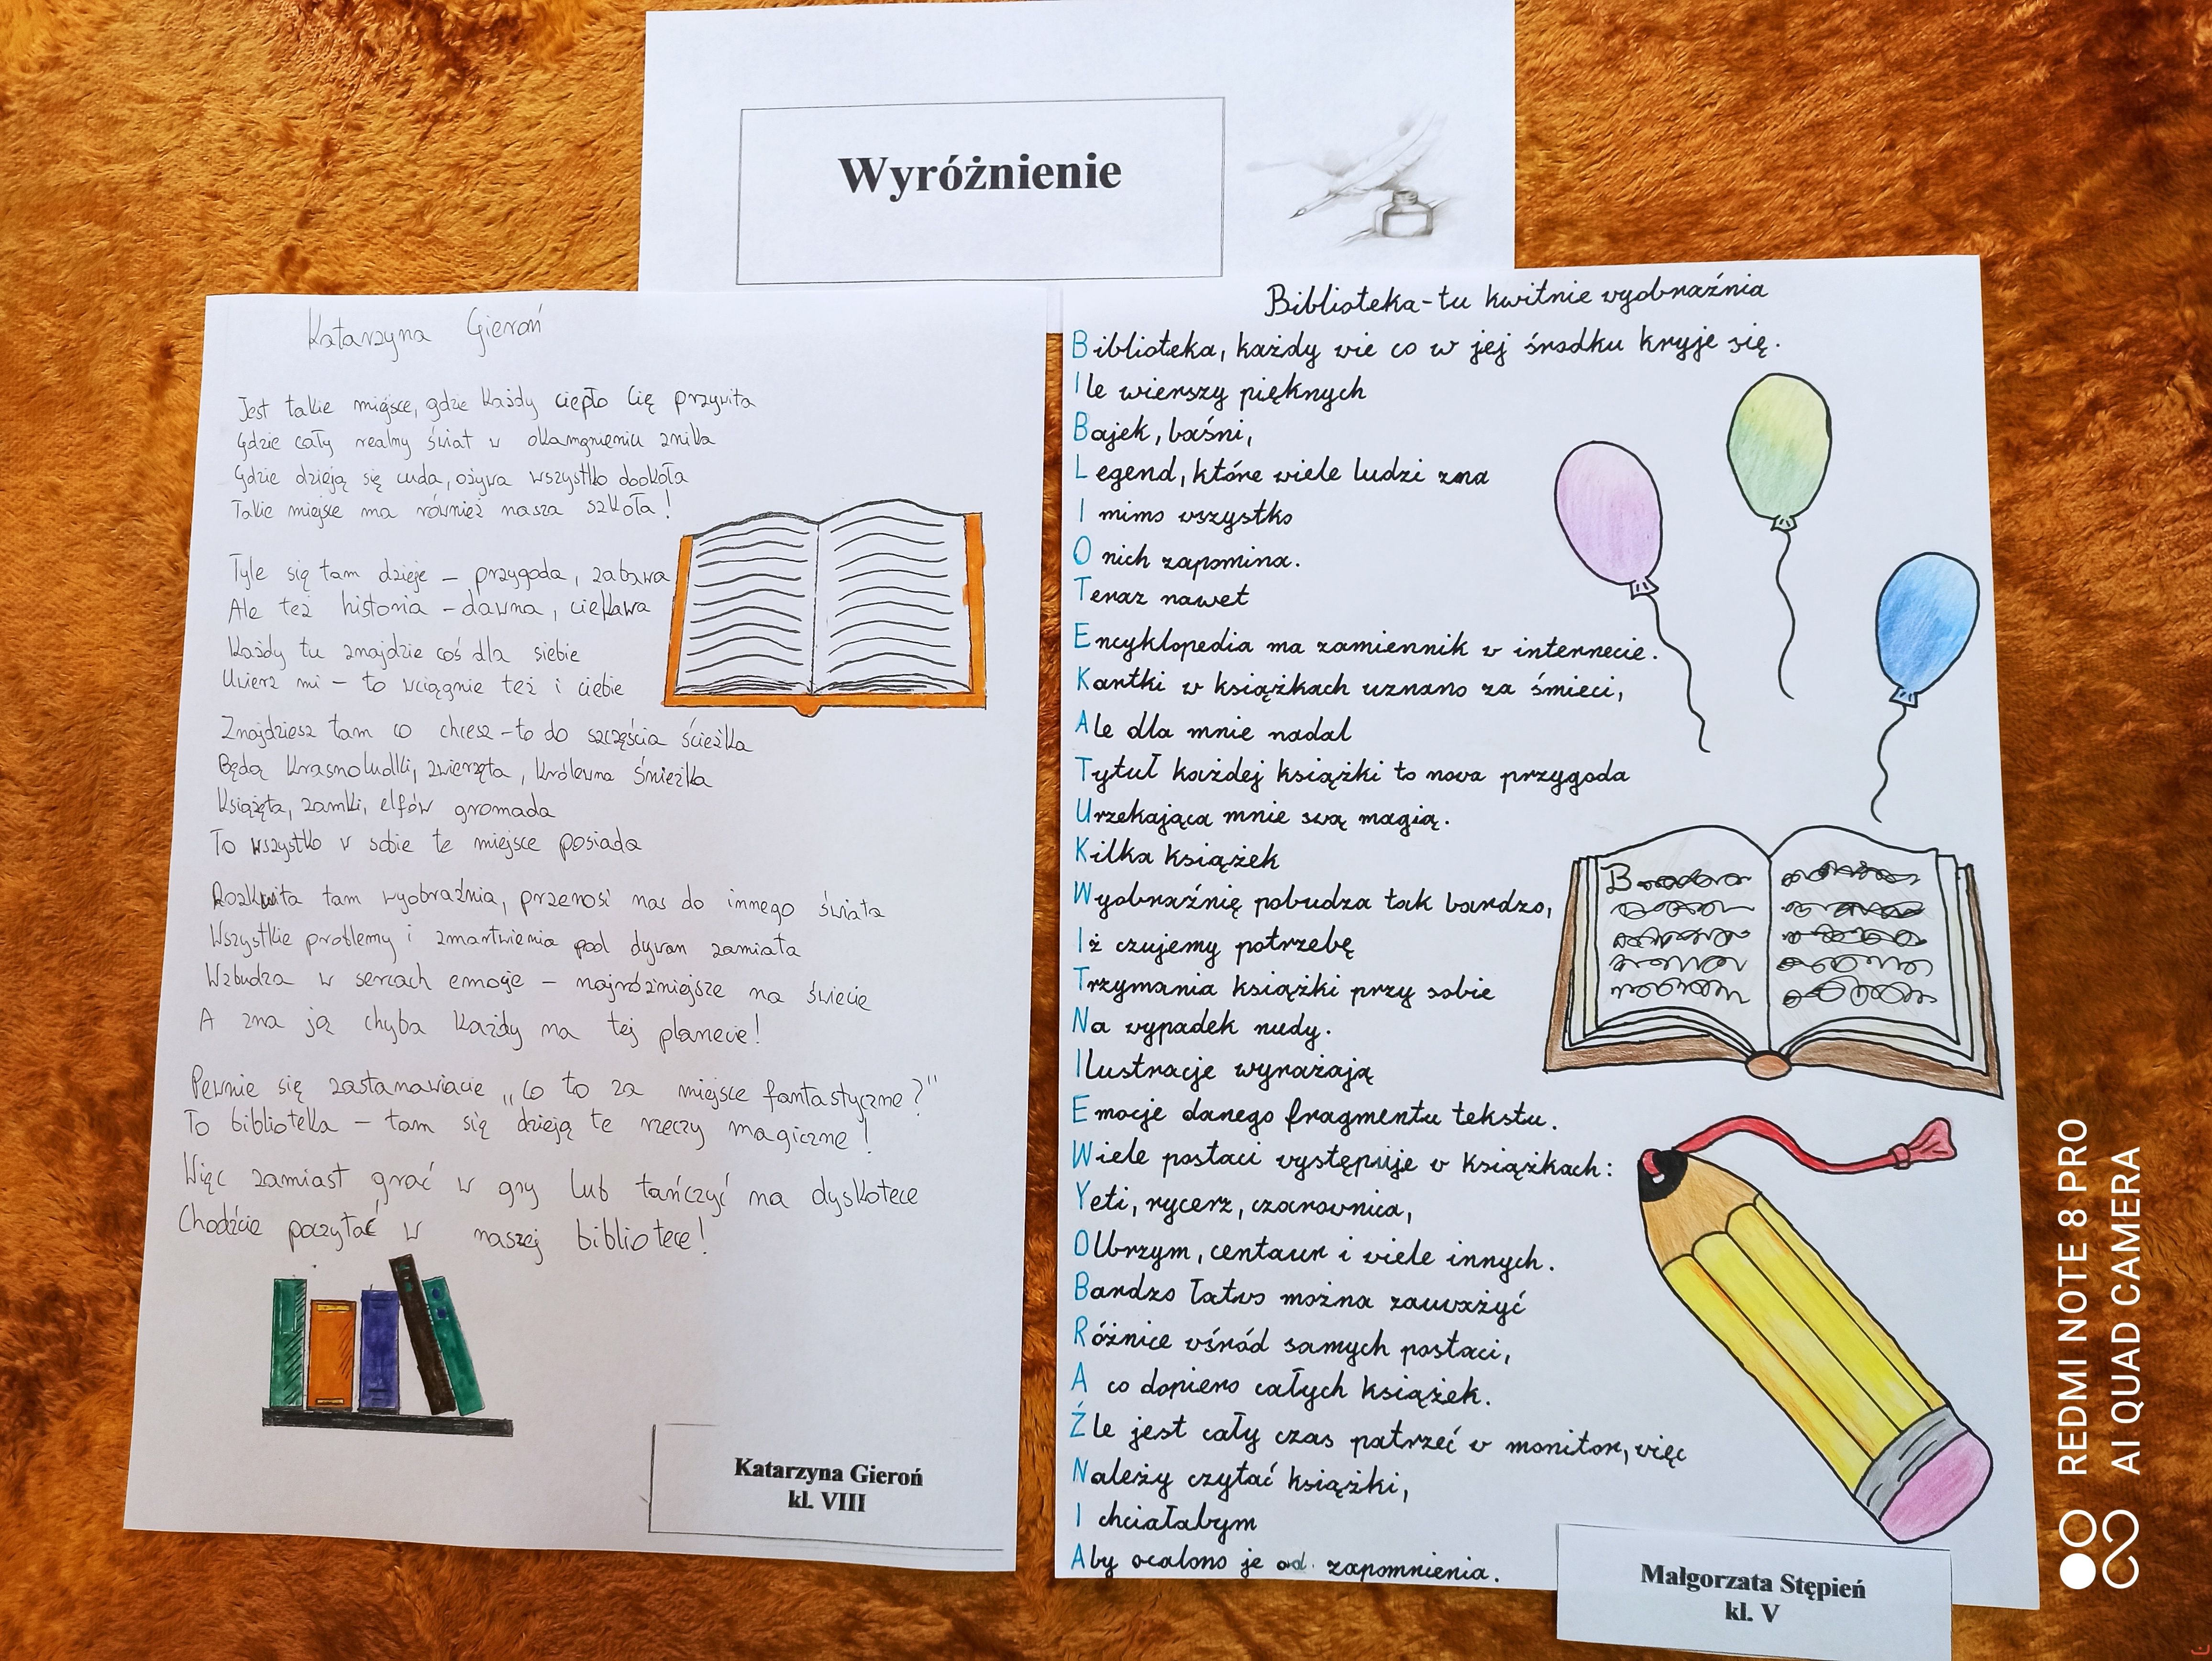 Wyróżnienie
Katarzyna Gieroń
Jest takie miejsce, gdzie każdy ciepło Cię przywita
Gdzie cały realny świat w okamgnieniu znika
Gdzie dzieją się cuda, ożywa wszystko dookoła
Takie miejsce ma również nasza szkoła!
Tyle się tam dzieje – przygoda, zabawa
Ale też historia – dawna, ciekawa
Każdy tu znajdzie coś dla siebie
Uwierz mi – to wciągnie też i ciebie
Znajdziesz tam co chcesz – to do szczęścia ścieżka
Będą krasnoludki, zwierzęta, królewna śnieżka
Książęta, zamki, elfów gromada
To wszystko w sobie te miejsce posiada
Rozkwita tam wyobraźnia, przenosi nas do innego świata
Wszystkie problemy i zmartwienia pod dywan zamiata
Wzbudza w sercach emocje – najróżniejsze na świecie
A zna ją chyba każdy na tej planecie!
Pewnie się zastanawiacie „co to za miejsce fantastyczne?"
To biblioteka – tam się dzieją te rzeczy magiczne!
Więc zamiast grać w gry lub tańczyć na dyskotece
Chodźcie poczytać w naszej bibliotece!
Katarzyna Gieroń
kl. VIII
Biblioteka - tu kwitnie wyobraźnia
Biblioteka, każdy wie co w jej środku kryje się.
Ile wierszy pięknych
Bajek, baśni,
Legend, które wiele ludzi zna
I mimo wszystko
O nich zapomina.
Teraz nawet
Encyklopedia ma zamiennik w internecie.
Kartki w książkach uznano za śmieci,
Ale dla mnie nadal
Tytuł każdej książki to nowa przygoda
Urzekająca mnie swą magią.
Kilka książek
Wyobraźnię pobudza tak bardzo,
Iż czujemy potrzebę
Trzymania książki przy sobie
Na wypadek nudy.
Ilustracje wyrażają
Emocje danego fragmentu tekstu.
Wiele postaci występuje w książkach:
Yeti, rycerz, czarownica,
Olbrzym, centaur i wiele innych.
Bardzo łatwo można zauważyć
Różnice wśród samych postaci,
A co dopiero całych książek.
Źle jest cały czas patrzeć w monitor, więc
Należy czytać książki,
I chciałabym
Aby ocalono je od zapomnienia.
Małgorzata Stępień
kl. V
REDMI NOTE 8 PRO
AI QUAD CAMERA